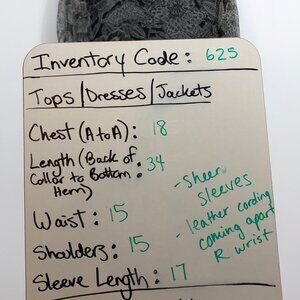 Inventory Code: 625
Tops/Dresses/Jackets
Chest (A to A): 18
Length (Back of
Collar to Bottom : 34
Hem)
- sheer
sleeves
Waist: 15
- leather cording
coming apart
R wrist
Shoulders: 15
Sleeve Length: 17